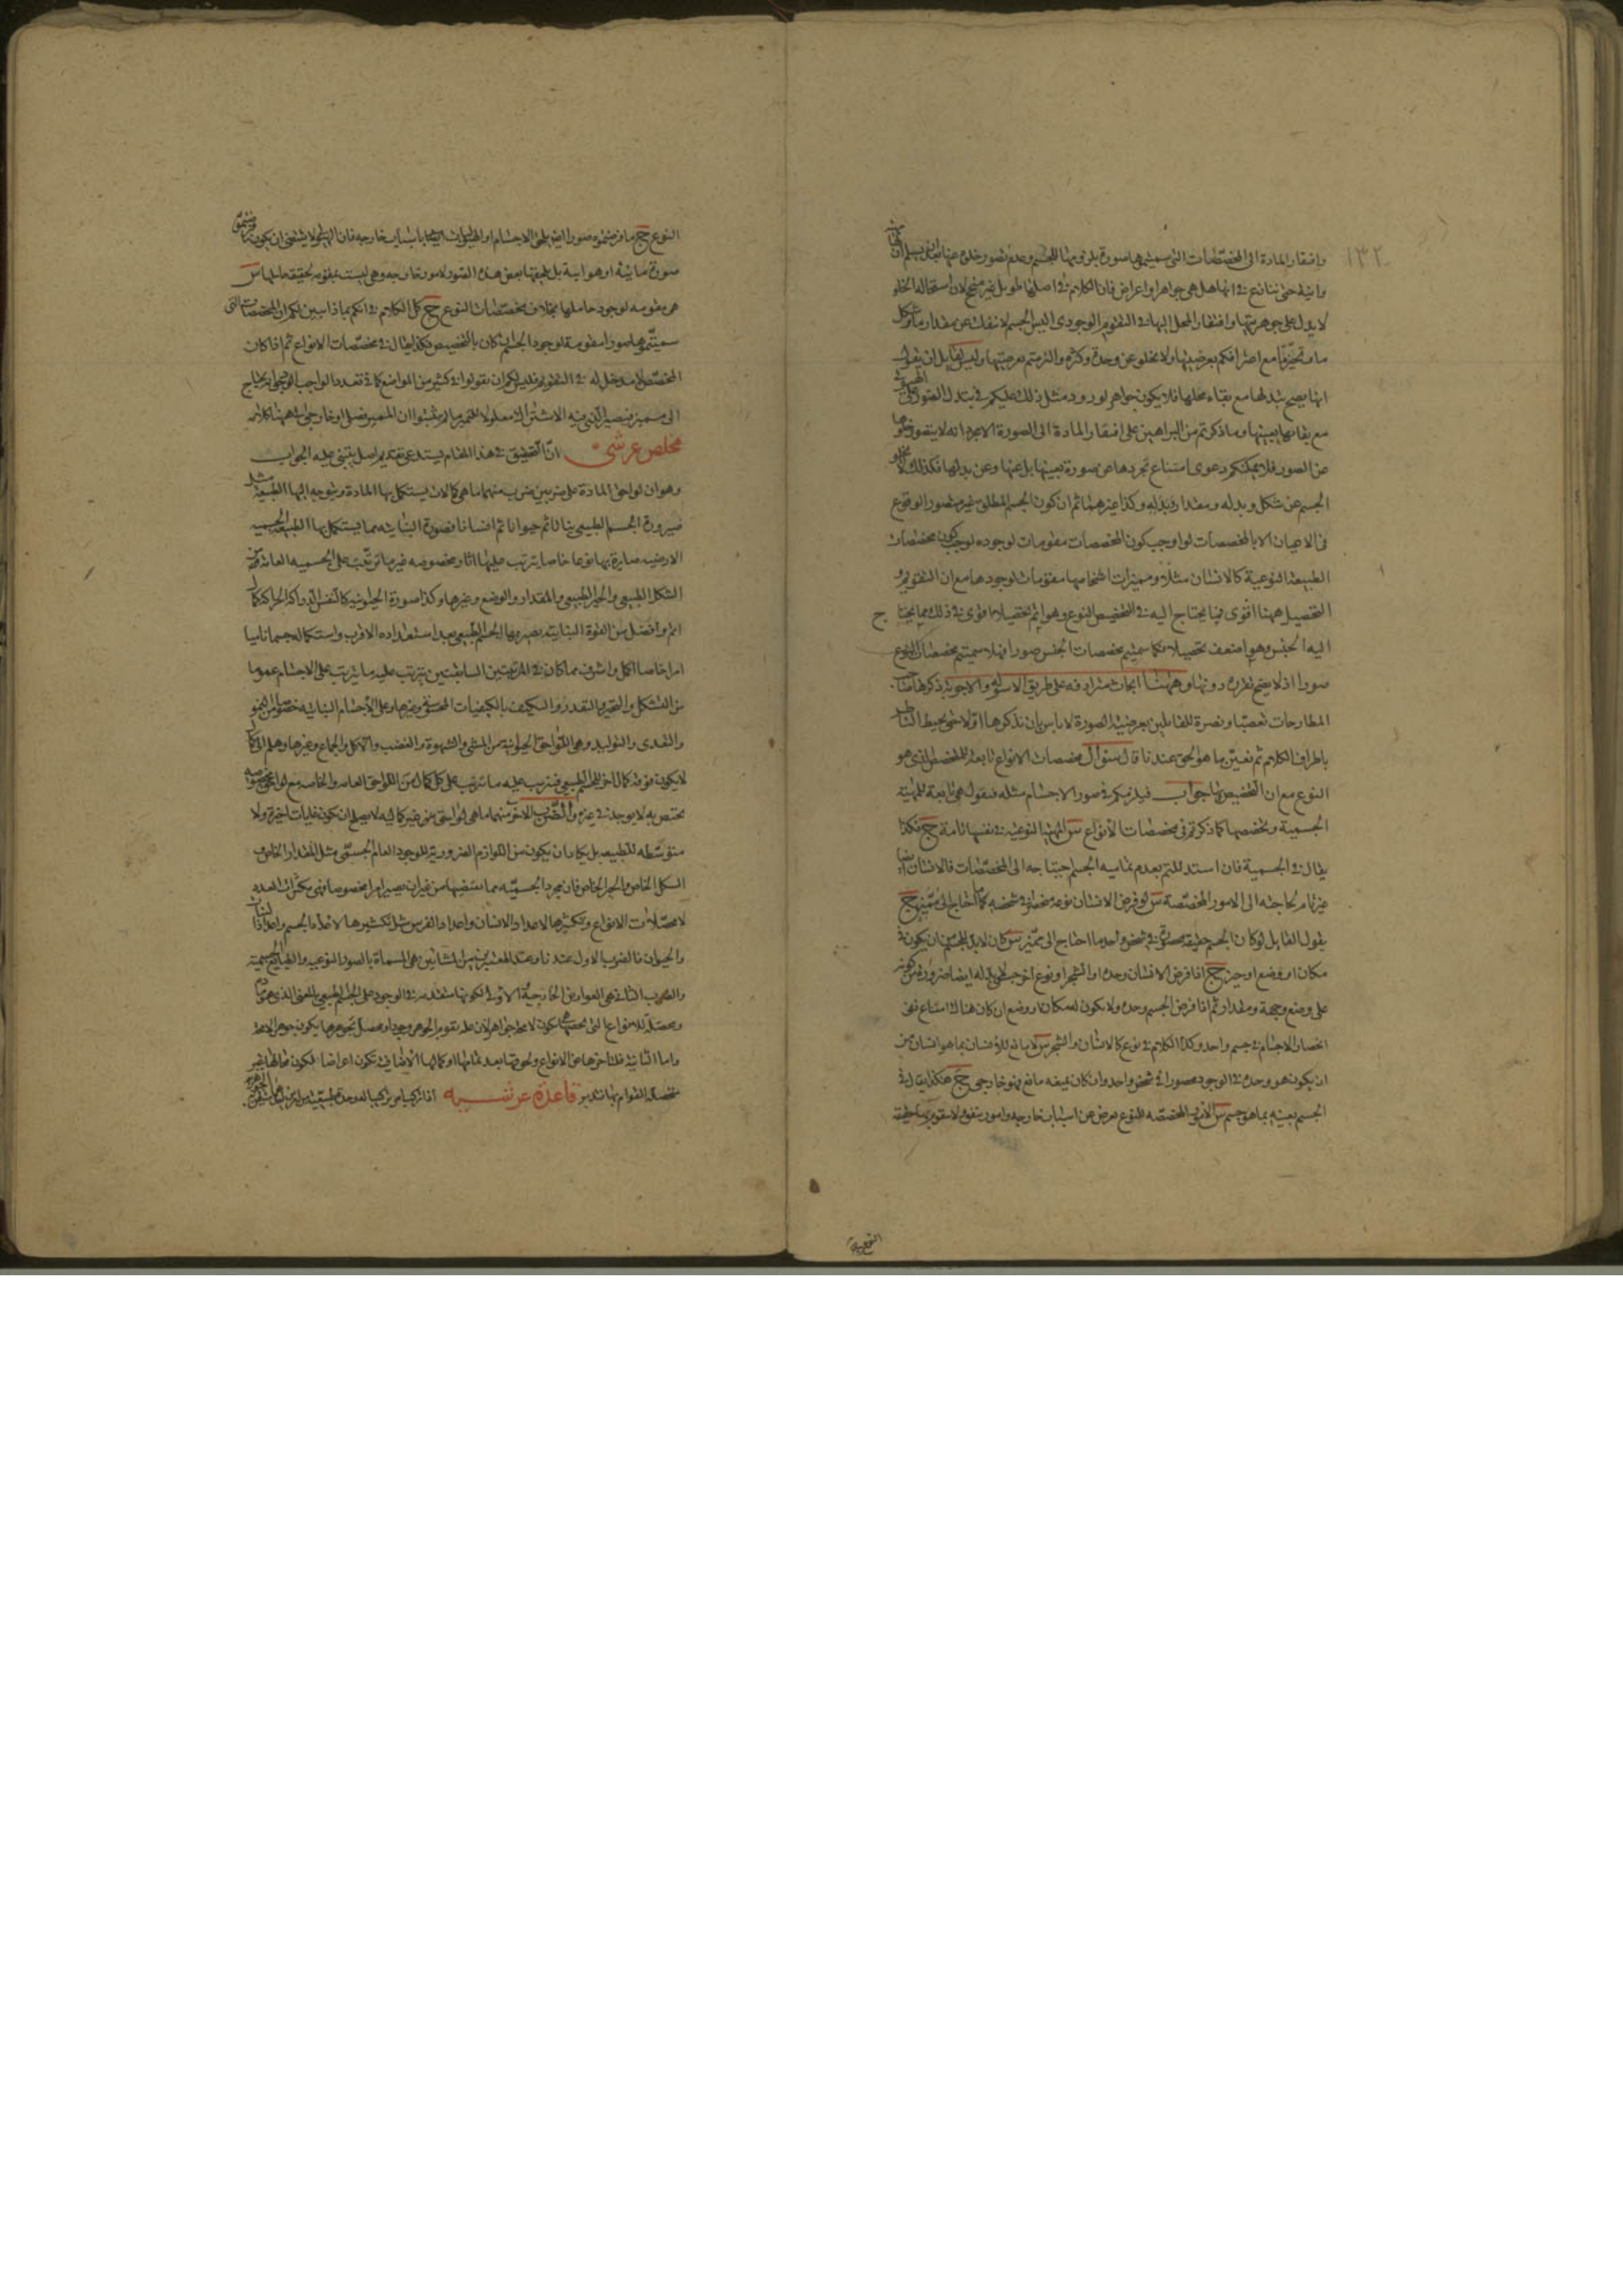 ١٣٢
وافتقار المادة الى المخصصات التى سميتموها صورة يلزمونها للجسم وعدم تصور خلوه عنها
وانية حتى نتنازع فى انها هل هى جواهر او اعراض فان الكلام فى اصلها طويل غير منجح لان استحالة الخلو
لا يدل على جوهريتها وافتقار المحل اليها فى التقوم الوجودى اليس الجسم لا ينفك عن مقدار ما وشكل
ما وتحيز ما مع اعترافكم بعرضيتها ولا يخلو عن وحدة وكثرة والتزمتم بعرضيتها وليس لقائل ان يقول
انها يصح تبدلها مع بقاء محلها فلا يكون جواهر لورود مثل ذلك عليكم فى تبدل الصور على الهيولى
مع بقائها بعينها وما ذكرتم من البراهين على افتقار المادة الى الصورة الاعم انه لا يتصور خلوها
عن الصور فلا يمكنكم دعوى امتناع تجردها عن صورة بعينها بل عنها وعن بدلها فكذلك لا يخلو
الجسم عن شكل وبدله ومقدار وبدله وكذا غيرهما ثم ان كون الجسم المطلق غير متصور الوقوع
فى الاعيان الا بالمخصصات لو اوجب كون المخصصات مقومات لوجوده لوجب كون مخصصات
الطبيعة النوعية كالانسان مثلا ومميزات اشخاصها مقومات لوجودها مع ان التقويم و
التحصيل ههنا اقوى فيما يحتاج اليه فى التخصيص النوع وهو اتم تحصيلا اقوى فى ذلك مما يحتاج
اليه الجنس وهو اضعف تحصيلا فكما سميتم مخصصات الجنس صورا فهلا سميتم مخصصات النوع
صورا اذ لا يصح تقرره دونها وههنا ابحاث مترادفة على طريق الاسولة والاجوبة ذكرها صاحب
المطارحات تعصبا ونصرة للقائلين بعرضية الصورة لا باس بان نذكرها اولا حتى يحيط الناظر
باطراف الكلام ثم نعين ما هو الحق عندنا قال سؤال مخصصات الانواع تابعة للمخصص الذى هو
النوع مع ان التخصيص بها جواب فيلزمكم فى صور الاجسام مثله فنقول هى تابعة للمهية
الجسمية وتخصصها كما ذكرتم فى مخصصات الانواع س المهية النوعية فى نفسها تامة ج فكذا
يقال فى الجسمية فان استدللتم بعدم تمامية الجسم احتياجه الى المخصصات فالانسان ايضا
غير تام لحاجته الى الامور المخصصة س لو فرض الانسان نوعه منحصرا فى شخصه ما احتاج الى مميز ج
يقول القائل لو كان الجسم حقيقة محصورة فى شخص واحد ما احتاج الى مميز س كان لابد للجسم ان يكون فى
مكان او وضع او حيز ج اذا فرض الانسان وحده او الشجر او نوع اخر جسمى لابد له ايضا ضرورة من كونه
على وضع وجهة ومقدار ثم اذا فرض الجسم وحده ولا يكون له مكان او وضع ان كان هناك امتناع ففى
انحصار الاجسام فى جسم واحد وكذا الكلام فى نوع كالانسان والشجر س لا مانع للانسان بما هو انسان من
ان يكون هو وحده فى الوجود محصورا فى شخص واحد وان كان فيه مانع فهو خارجى ج هكذا يقال فى
الجسم بعينه بما هو جسم س الامور المخصصة للنوع تعرض من اسباب خارجة وامور يتفق لا مقومة لماهية
النوع ج
النوع ج ما فرضتموه صورا ايضا يلحق الاجسام او الهيوليات لها باسباب خارجة فان الهيولى لا يقتضى ان يكون
صورة مائية او هوائية بل يلحقها بعض هذه الصور لامور خارجة وهى ليست مقومة لحقيقة حاملها س
هى مقومة لوجود حاملها بخلاف مخصصات النوع ج كل الكلام فى انكم بماذا تبين لكم ان المخصصات التى
سميتموها صورا مقومة لوجود الجسم ان كان بالتخصيص فكذا يقال فى مخصصات الانواع ثم اذا كان
المخصص لا مدخل له فى التقويم فليس لكم ان تقولوا فى كثير من المواضع كما فى تعدد الواجب الوجود انه يحتاج
الى مميز فيصير الذى فيه الاشتراك معلولا للمميز ما لم يثبتوا ان المميز فصل او خارجى انتهى كلامه
مخلص عرشى ان التحقيق فى هذا المقام يستدعى تقديم اصل يبتنى عليه الجواب
وهو ان لواحق المادة على ضربين ضرب منهما ما هى كمالات يستكمل بها المادة ويتوجه اليها الطبيعة مثل
صيرورة الجسم الطبيعى نباتا ثم حيوانا ثم انسانا فصورة النباتية مما يستكمل بها الطبيعة الجسمية
الارضية صايرة بها نوعا خاصا يترتب عليها اثار مخصوصة غير ما ترتب على الجسمية العامة من
الشكل الطبيعى والحيز الطبيعى والمقدار والوضع وغيرها وكذا صورة الحيوانية كالنفس الدراكة الحراكة
اتم وافضل من القوة النباتية يصير بها الجسم الطبيعى بعد استعداده الاقرب واستكماله جسما ناميا
امرا خاصا اكمل واشرف مما كان فى المرتبتين السابقتين يترتب عليه ما يترتب على الاجسام عموما
من التشكل والتحيز والتقدر والتكيف بالكيفيات المحسوسة وغيرها وعلى الاجسام النباتية خصوصا من النمو
والتغذى والتوليد وهى اللواحق الحيوانية من المشى والشهوة والغضب والاكل والجماع وغيرها وهلم الى
لا يكون فوقه كمال اخر للجسم الطبيعى فيترتب عليه ما يترتب على كل كمال من اللواحق العامة والخاصة مع لواحق مخصوصة
يختص به لا يوجد فى غيره والضرب الاخر منهما ما هى لواحق من غير كمالية لا يصلح ان يكون غايات اخيرة ولا
متوسطة للطبيعة بل يكاد ان يكون من اللوازم الضرورية للوجود العام الجسمى مثل المقدار الخاص و
الشكل الخاص والحيز الخاص فان مجرد الجسمية مما يقتضيها من غير ان يصير امرا مخصوصا فهى مكثرات العدد
لا محصلات الانواع وتكثيرها لاعداد الانسان واعداد الفرس مثل تكثيرها لاعداد الجسم
والحيوان فالضرب الاول عندنا وعند المعتبرين من المشائين هى المسماة بالصور النوعية والطبايع الجسمية
والضرب الثانى هى العوارض الخارجية اما الاولى فلكونها متقدمة فى الوجود على الجسم الطبيعى بالمعنى الذى
ومحصلة للانواع التى يكون لا محالة جواهر لان علة تقوم الجوهر وجودا ومحصل تجوهرها يكون جوهرا لا محالة
واما الثانية فلتاخرها عن الانواع ولحوقها بعد تمامها او كمالها الاضافى تكون اعراضا لكون محالها غير
متحصلة القوام بها تدبر قاعدة عرشيــه اذا تركب امر تركيبا له وحدة طبيعية